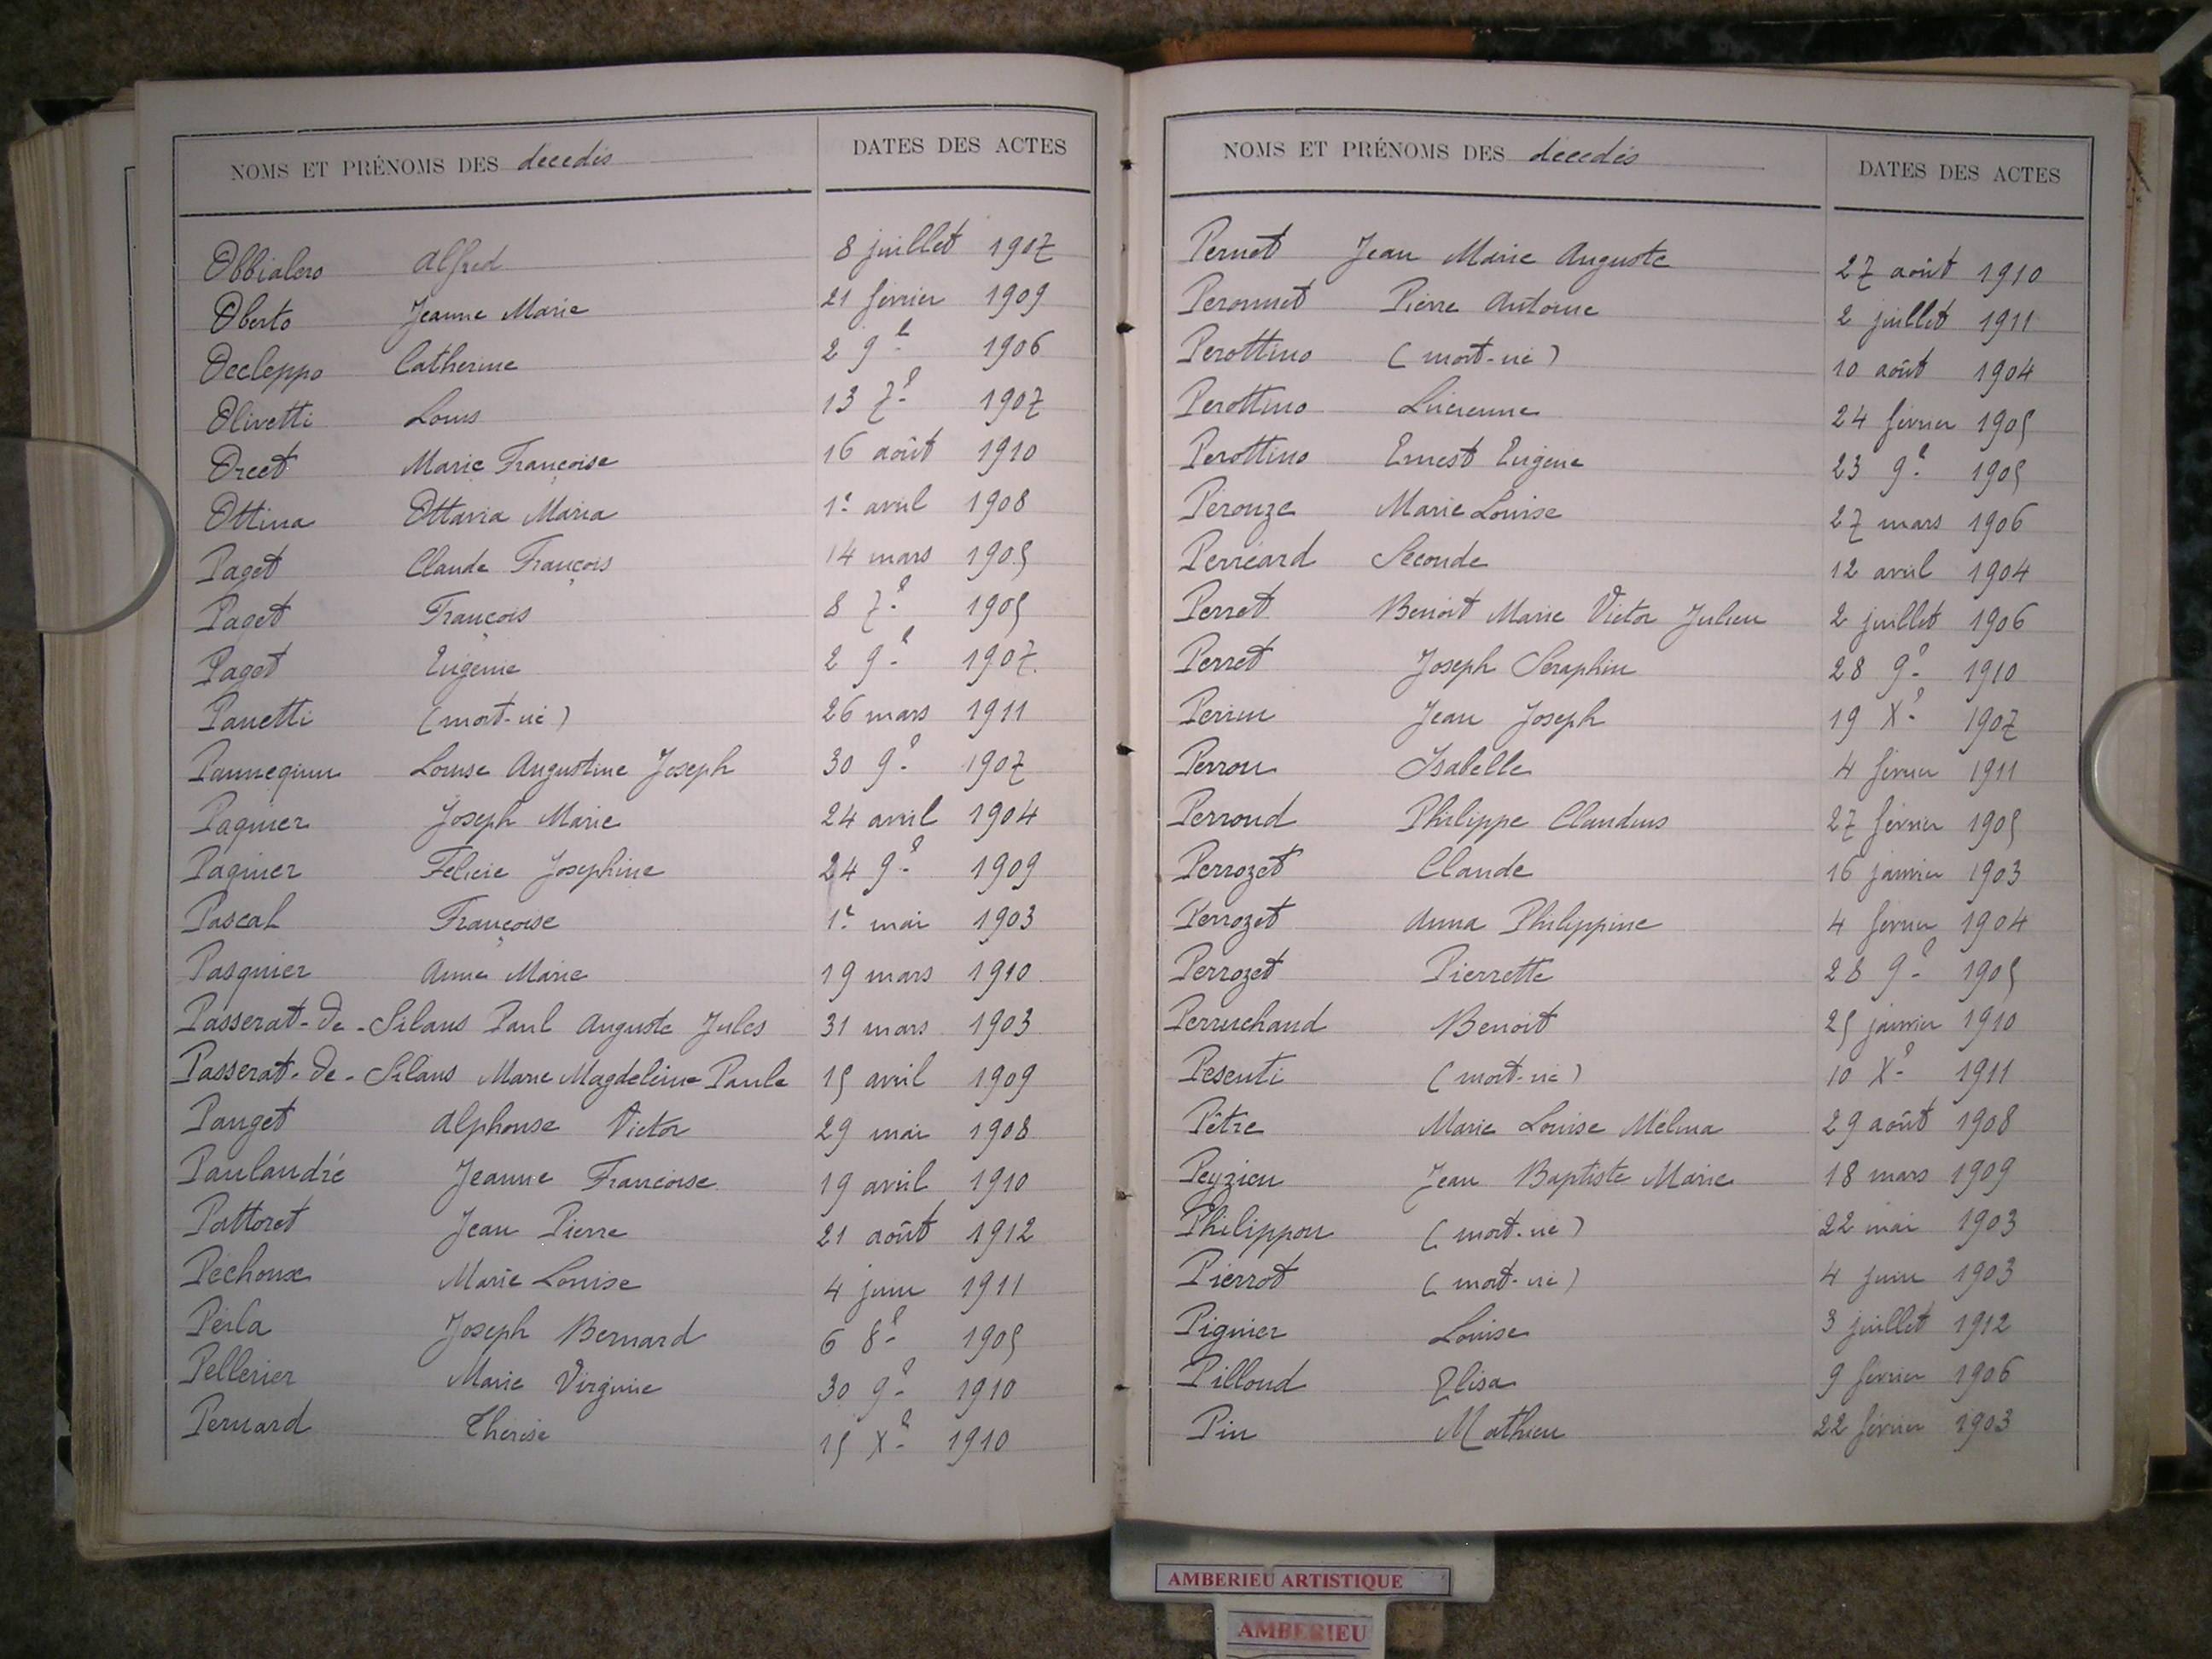 NOMS ET PRÉNOMS DES décédés DATES DES ACTES
Obbialero Alfred 8 juillet 1907
Oberto Jeanne Marie 21 février 1909
Occleppo Catherine 2 9e 1906
Olivetti Louis 13 7e 1907
Orcet Marie Françoise 16 août 1910
Ottina Ottavia Maria 1e avril 1908
Paget Claude François 14 mars 1905
Paget François 8 7e 1905
Paget Eugénie 2 9e 1907
Panetti (mort-né) 26 mars 1911
Pannequin Louise Augustine Joseph 30 9e 1907
Paquier Joseph Marie 24 avril 1904
Paquier Félicie Joséphine 24 9e 1909
Pascal Françoise 1e mai 1903
Pasquier Anne Marie 19 mars 1910
Passerat-de-Silans Paul Auguste Jules 31 mars 1903
Passerat-de-Silans Marie Magdeleine Paule 15 avril 1909
Pauget Alphonse Victor 29 mai 1908
Paulandré Jeanne Françoise 19 avril 1910
Pattoret Jean Pierre 21 août 1912
Péchoux Marie Louise 4 juin 1911
Peila Joseph Bernard 6 8e 1905
Pellerier Marie Virginie 30 9e 1910
Pernard Thérèse 15 Xe 1910
NOMS ET PRÉNOMS DES décédés DATES DES ACTES
Pernet Jean Marie Auguste 27 août 1910
Peronnet Pierre Antoine 2 juillet 1911
Perottino (mort-né) 10 août 1904
Perottino Lucienne 24 février 1905
Perottino Ernest Eugène 23 9e 1905
Pérouze Marie Louise 27 mars 1906
Perréard Seconde 12 avril 1904
Perret Benoit Marie Victor Julien 2 juillet 1906
Perret Joseph Seraphin 28 9e 1910
Perrin Jean Joseph 19 Xe 1907
Perron Isabelle 4 février 1911
Perroud Philippe Claudius 27 février 1905
Perrozet Claude 16 janvier 1903
Perrozet Anna Philippine 4 février 1904
Perrozet Pierrette 28 9e 1905
Perruchaud Benoit 25 janvier 1910
Pesenti (mort-né) 10 Xe 1911
Pêtre Marie Louise Mélina 29 août 1908
Peyzieu Jean Baptiste Marie 18 mars 1909
Philippon (mort-né) 22 mai 1903
Pierrot (mort-né) 4 juin 1903
Piguier Louise 3 juillet 1912
Pilloud Elisa 9 février 1906
Pin Mathieu 22 février 1903
AMBERIEU ARTISTIQUE
AMBERIEU